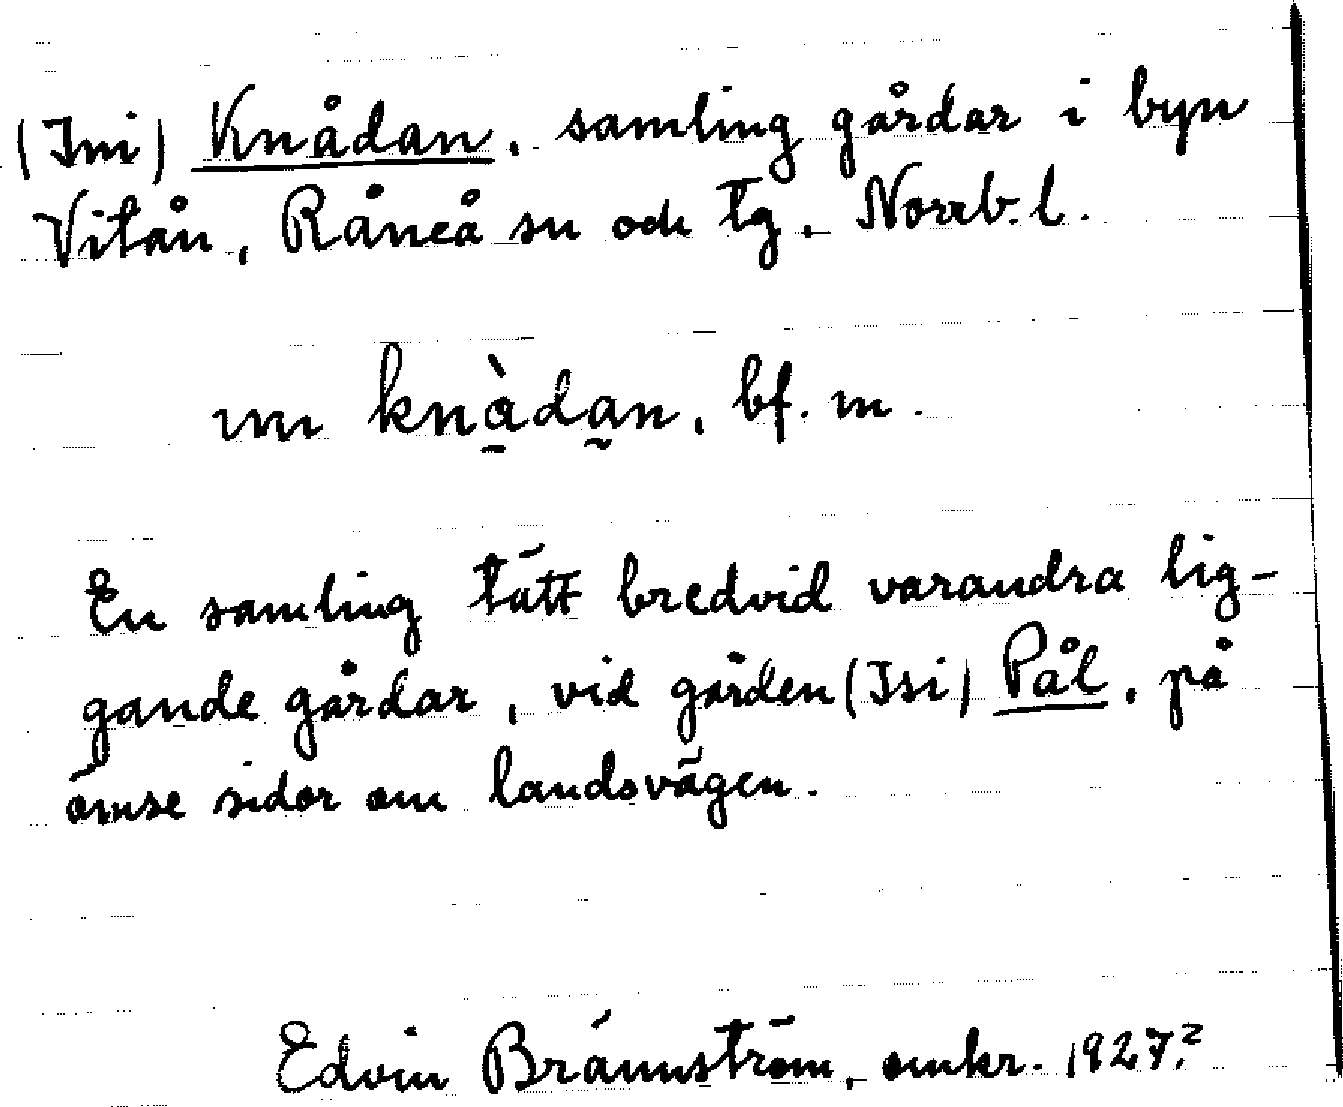 (Ini) Knådan, samling gårdar i byn
Vitån, Råneå sn och tg, Norrb. l.
ini knà̱da̰n, bf. m.
En samling tätt bredvid varandra lig-
gande gårdar, vid gården (Isi) Pål, på
ömse sidor om landsvägen.
Edvin Brännström, omkr. 1927?